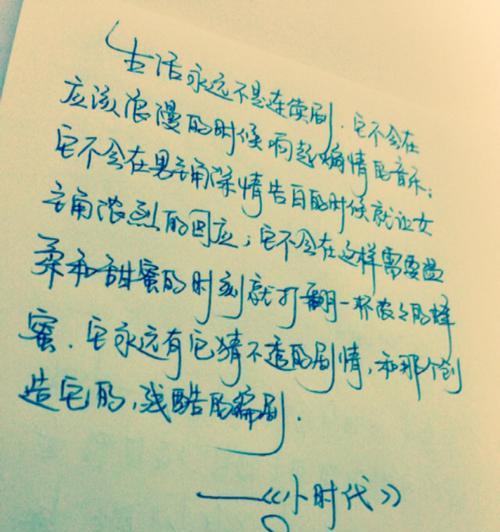 生活永远不是连续剧．它不会在
应该浪漫的时候响起煽情的音乐；
它不会在男主角深情告白的时候就让女
主角浓烈的回应；它不会在这样需要温
柔和甜蜜的时刻就打翻一杯浓浓的蜂
蜜．它永远有它猜不透的剧情，和那个创
造它的，残酷的编剧．
——《小时代》